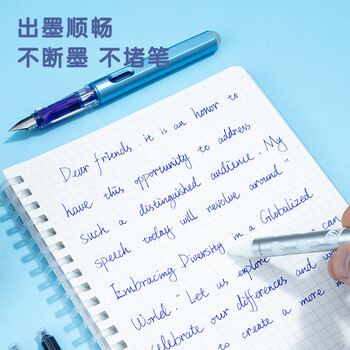 出墨顺畅
不断墨 不堵笔
Dear friends. it is an honor to
have this opportunity to address
such a distinguished audience. My
speech today will revolve around"
Embracing Diversity in a Globalized
World." Let us explore can
celebrate our differences and
to create a more